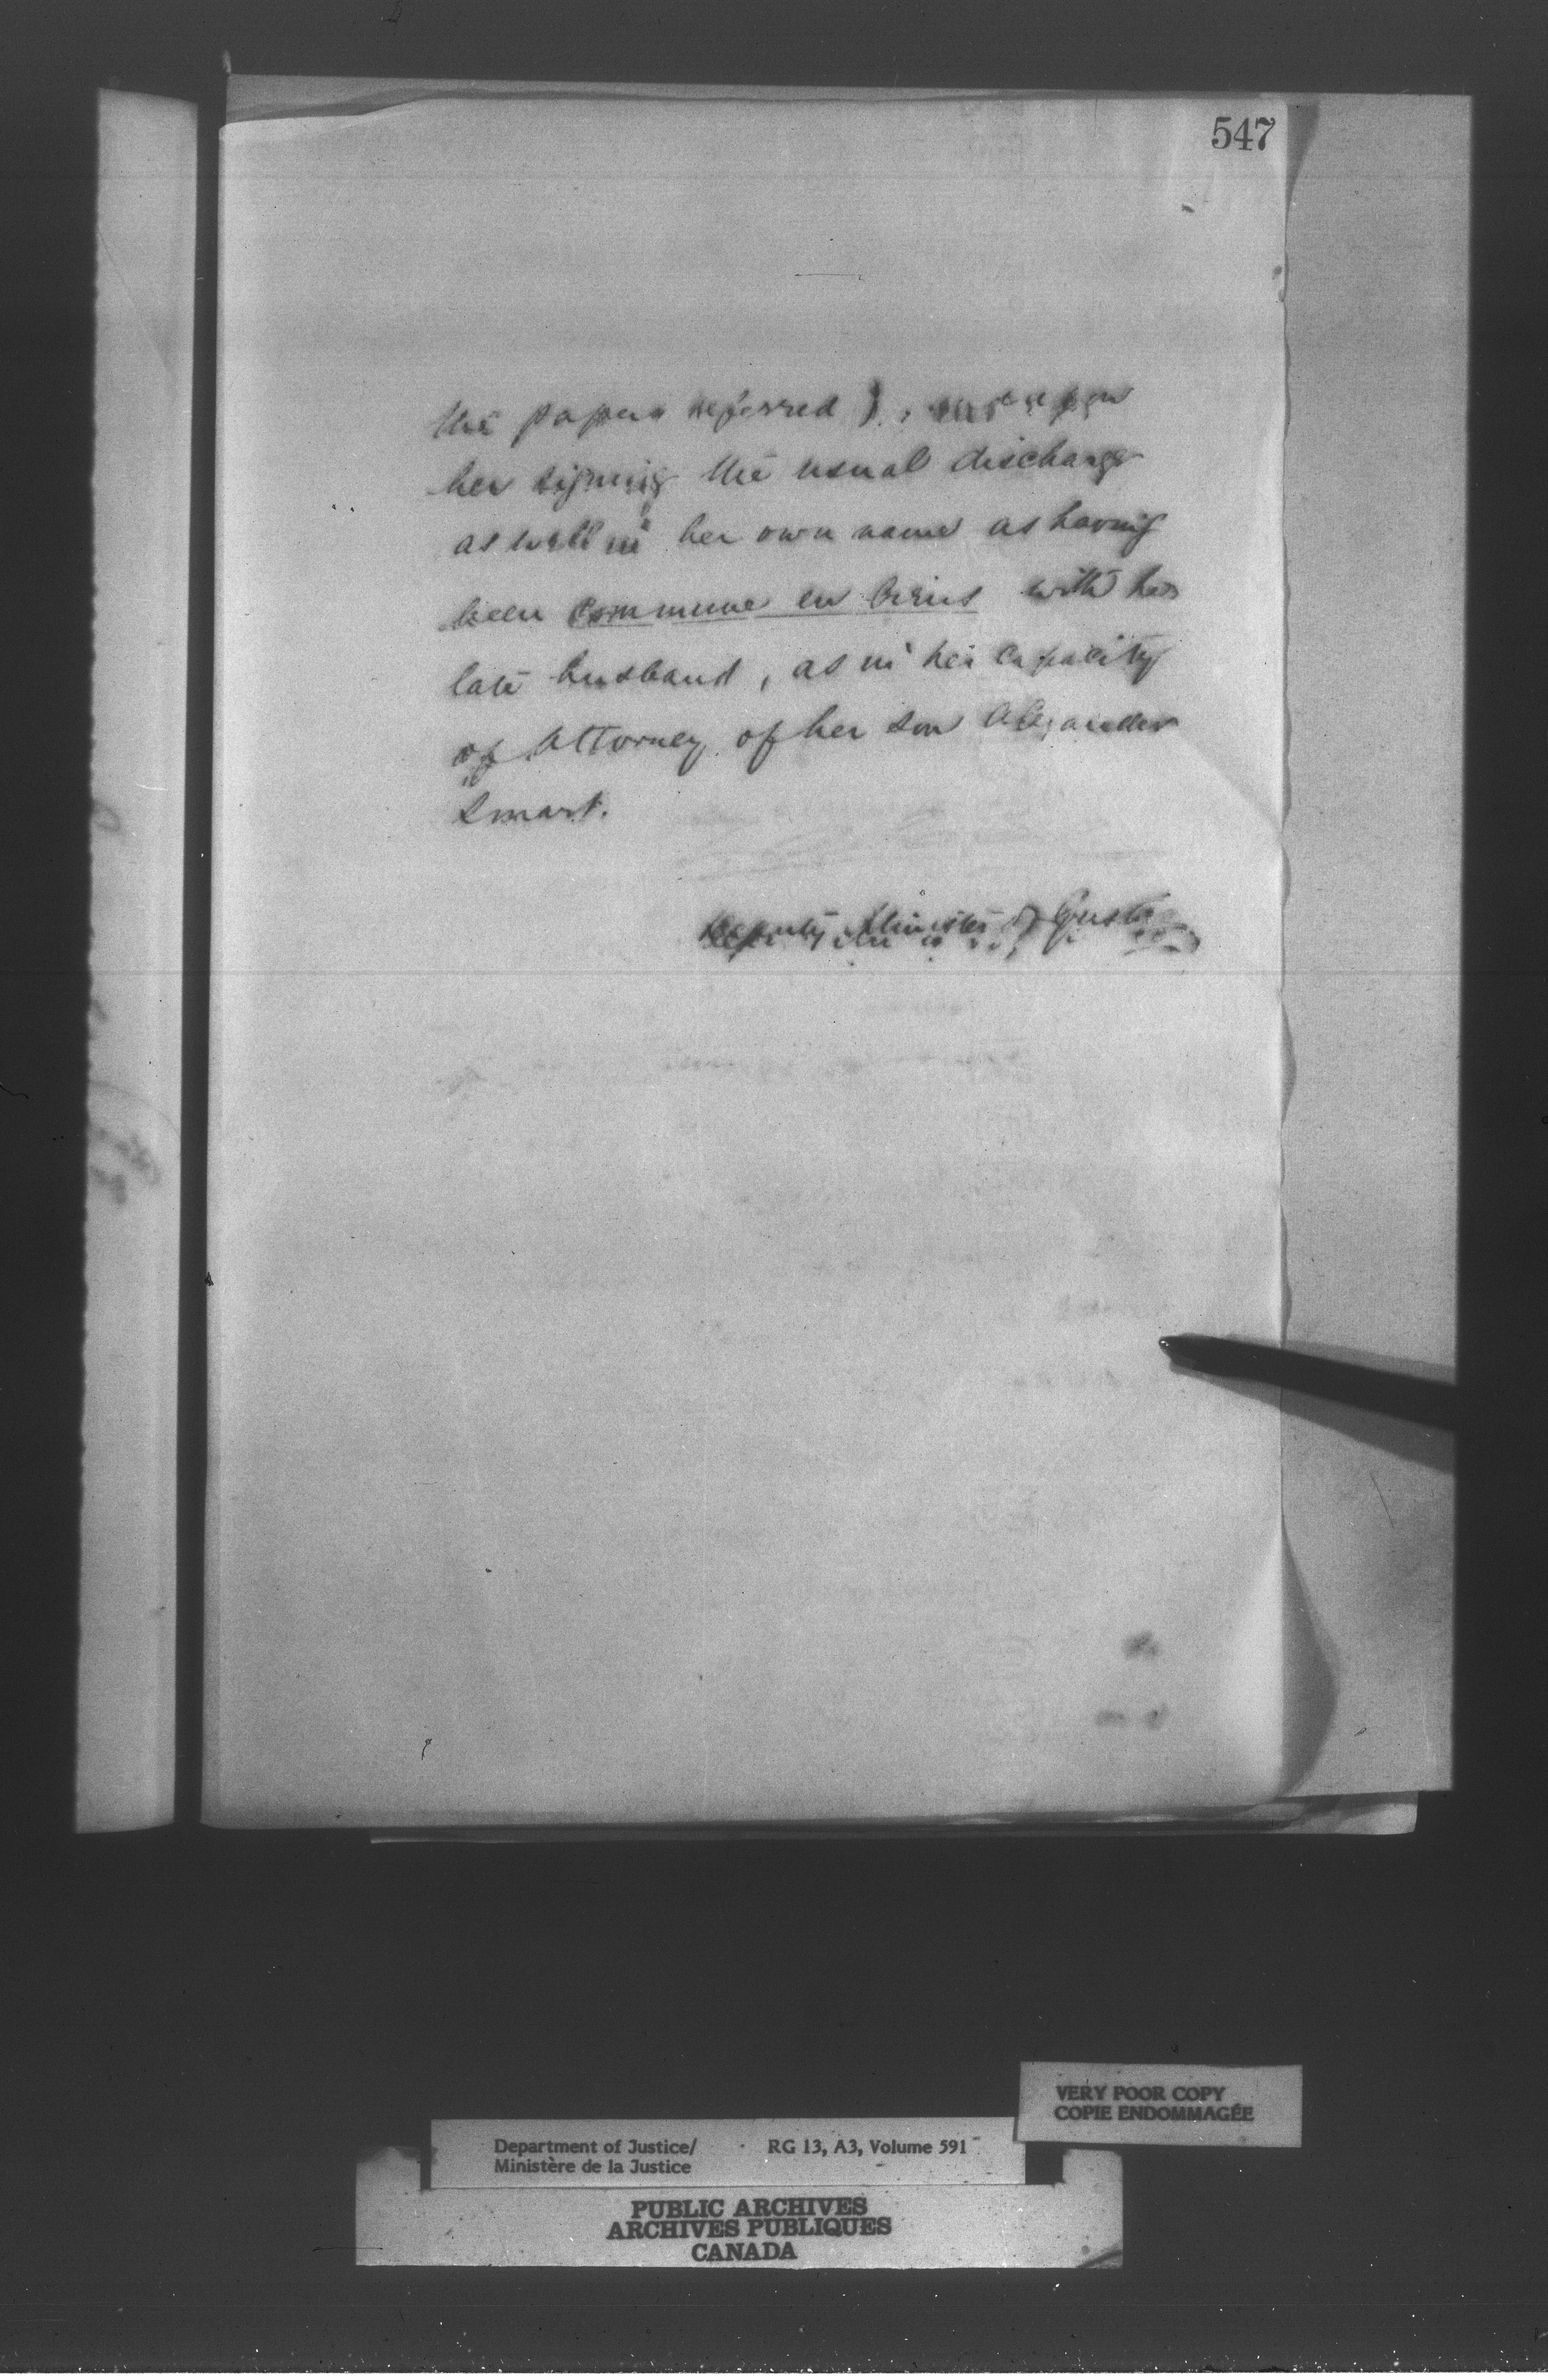 547
the papers referred), upon
her signing the usual discharge
as well in her own name as having
been commune en biens with her
late husband, as in her capacity
of Attorney of her son Alexander
Smart.
Deputy Minister of Justice
VERY POOR COPY
COPIE ENDOMMAGÉE
Department of Justice/ RG 13, A3, Volume 591
Ministère de la Justice
PUBLIC ARCHIVES
ARCHIVES PUBLIQUES
CANADA